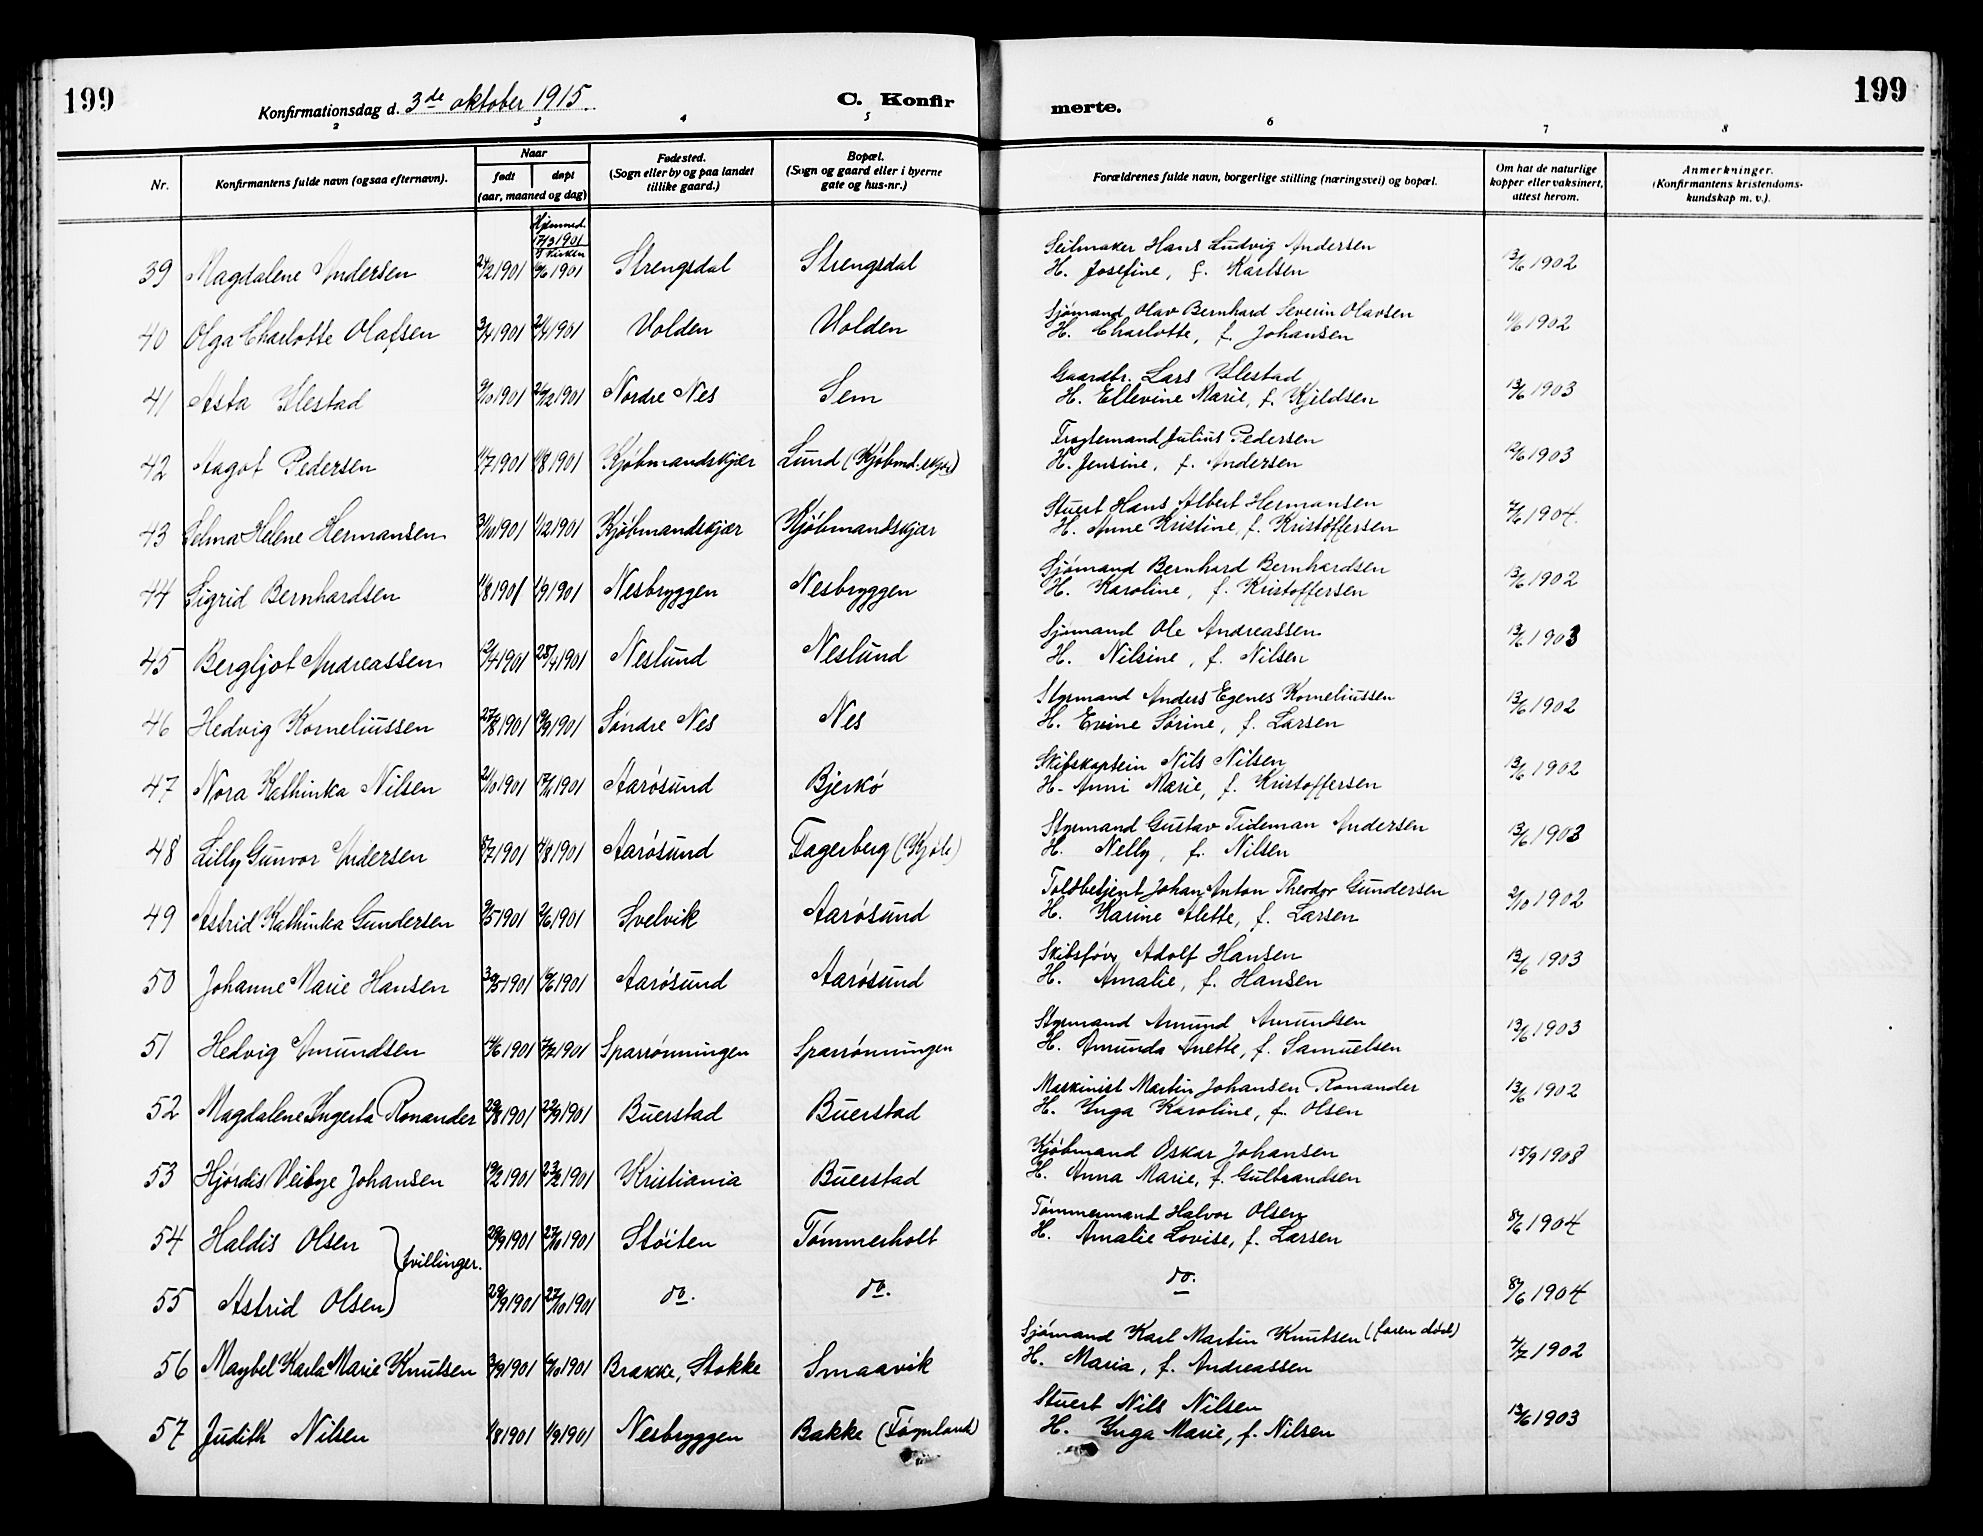 199
Konfirmationsdag d. 3de oktober 1915.
C. Konfir
merte.
199
2 3 4 5 6 7 8
Nr.
Konfirmantens fulde navn (ogsaa efternavn).
Naar
født
døpt
(aar, maaned og dag)
Fødested.
(Sogn eller by og paa landet
tillike gaard.)
Bopæl.
(Sogn og gaard eller i byerne
gate og hus-nr.)
Forældrenes fulde navn, borgerlige stilling (næringsvei) og bopæl.
Om hat de naturlige
kopper eller vaksinert,
attest herom.
Anmerkninger.
(Konfirmantens kristendoms-
kundskap m. v.).
Hjemmed.
17/3 1901
I Kirken
Seilmaker Hans Ludvig Andersen
39 Magdalene Andersen 24/2 1901 16/6 1901 Strengsdal Strengsdal H. Josefine, f. Karlsen 13/6 1902
Sjømand Olav Bernhard Severin Olavsen
40 Olga Charlotte Olafsen 3/4 1901 21/4 1901 Holden Holden H. Charlotte, f. Johansen 11/6 1902
Gaardbr. Lars Ilestad
41 Asta Ilestad 9/10 1901 26/12 1901 Nordre Nes Sem H. Ellevine Marie, f. Kjeldsen 13/6 1903
Julius Pedersen
42 Aagot Pedersen 11/7 1901 11/8 1901 Kjøbmandskjær Lund (Kjøbmd.skjær) H. Jensine, f. Andersen 12/6 1903
Stuert Hans Albert Hermansen
43 Selma Helene Hermansen 31/10 1901 1/12 1901 Kjøbmandskjær Kjøbmandskjær H. Anne Kristine, f. Kristoffersen 7/6 1904.
Sjømand Bernhard Bernhardsen
44 Sigrid Bernhardsen 11/8 1901 1/9 1901 Nesbryggen Nesbryggen H. Karoline, f. Kristoffersen 13/6 1902
Sjømand Ole Andreassen
45 Bergljot Andreassen 12/4 1901 28/4 1901 Neslund Neslund H. Nilsine, f. Nilsen 13/6 1903
Styrmand Anders Egenes Korneliussen
46 Hedvig Korneliussen 27/8 1901 19/9 1901 Søndre Nes Nes H. Evine Sørine, f. Larsen 13/6 1902
Skibskaptein Nils Nilsen
47 Nora Kathinka Nilsen 21/10 1901 17/11 1901 Aarøsund Bjerkø H. Anni Marie, f. Kristoffersen 13/6 1902
Styrmand Gustav Tideman Andersen
48 Lilly Gunvor Andersen 8/7 1901 4/8 1901 Aarøsund Fagerberg H. Nelly, f. Nilsen 13/6 1903
Toldbetjent Johan Anton Theodor Gundersen
49 Astrid Kathinka Gundersen 9/5 1901 9/6 1901 Svelvik Aarøsund H. Karine Alette, f. Larsen 2/10 1902
Skibsfører Adolf Hansen
50 Johanne Marie Hansen 30/5 1901 16/6 1901 Aarøsund Aarøsund H. Amalie, f. Hansen 13/6 1903
Styrmand Amund Amundsen
51 Hedvig Amundsen 14/6 1901 7/7 1901 Sparrønningen Sparrønningen H. Amunda Anette, f. Samuelsen 13/6 1903
Maskinist Martin Johansen Ronander
52 Magdalene Ingerta Ronander 29/8 1901 22/9 1901 Buerstad Buerstad H. Inga Karoline, f. Olsen 13/6 1902
Kjøbmand Oskar Johansen
53 Hjørdis Veibye Johansen 19/2 1901 Kristiania Buerstad H. Anna Marie, f. Gulbrandsen 15/9 1908
Tømmermand Halvor Olsen
54 Haldis Olsen 29/9 1901 27/10 1901 Støiten Tømmerholt H. Amalie Lovise, f. Larsen 8/6 1904
tvillinger.
55 Astrid Olsen 29/9 1901 27/10 1901 do. do. do. 8/6 1904
Sjømand Karl Martin Knutsen (faren død)
56 Maybel Karla Marie Knutsen 1901 1901 Brække, Stokke Smaavik H. Maria, f. Andreassen 4/7 1902
Stuert Nils Nilsen
57 Judith Nilsen 1/8 1901 1/9 1901 Nesbryggen Bakke (Føynland) H. Inga Marie, f. Nilsen 13/6 1903